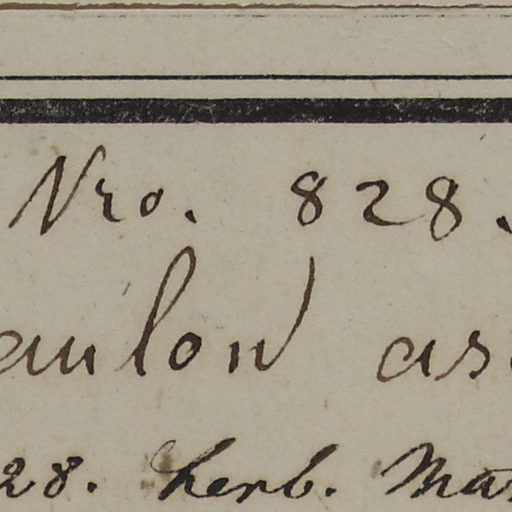 Nro. 828.
aulon as
28. herb. Mar